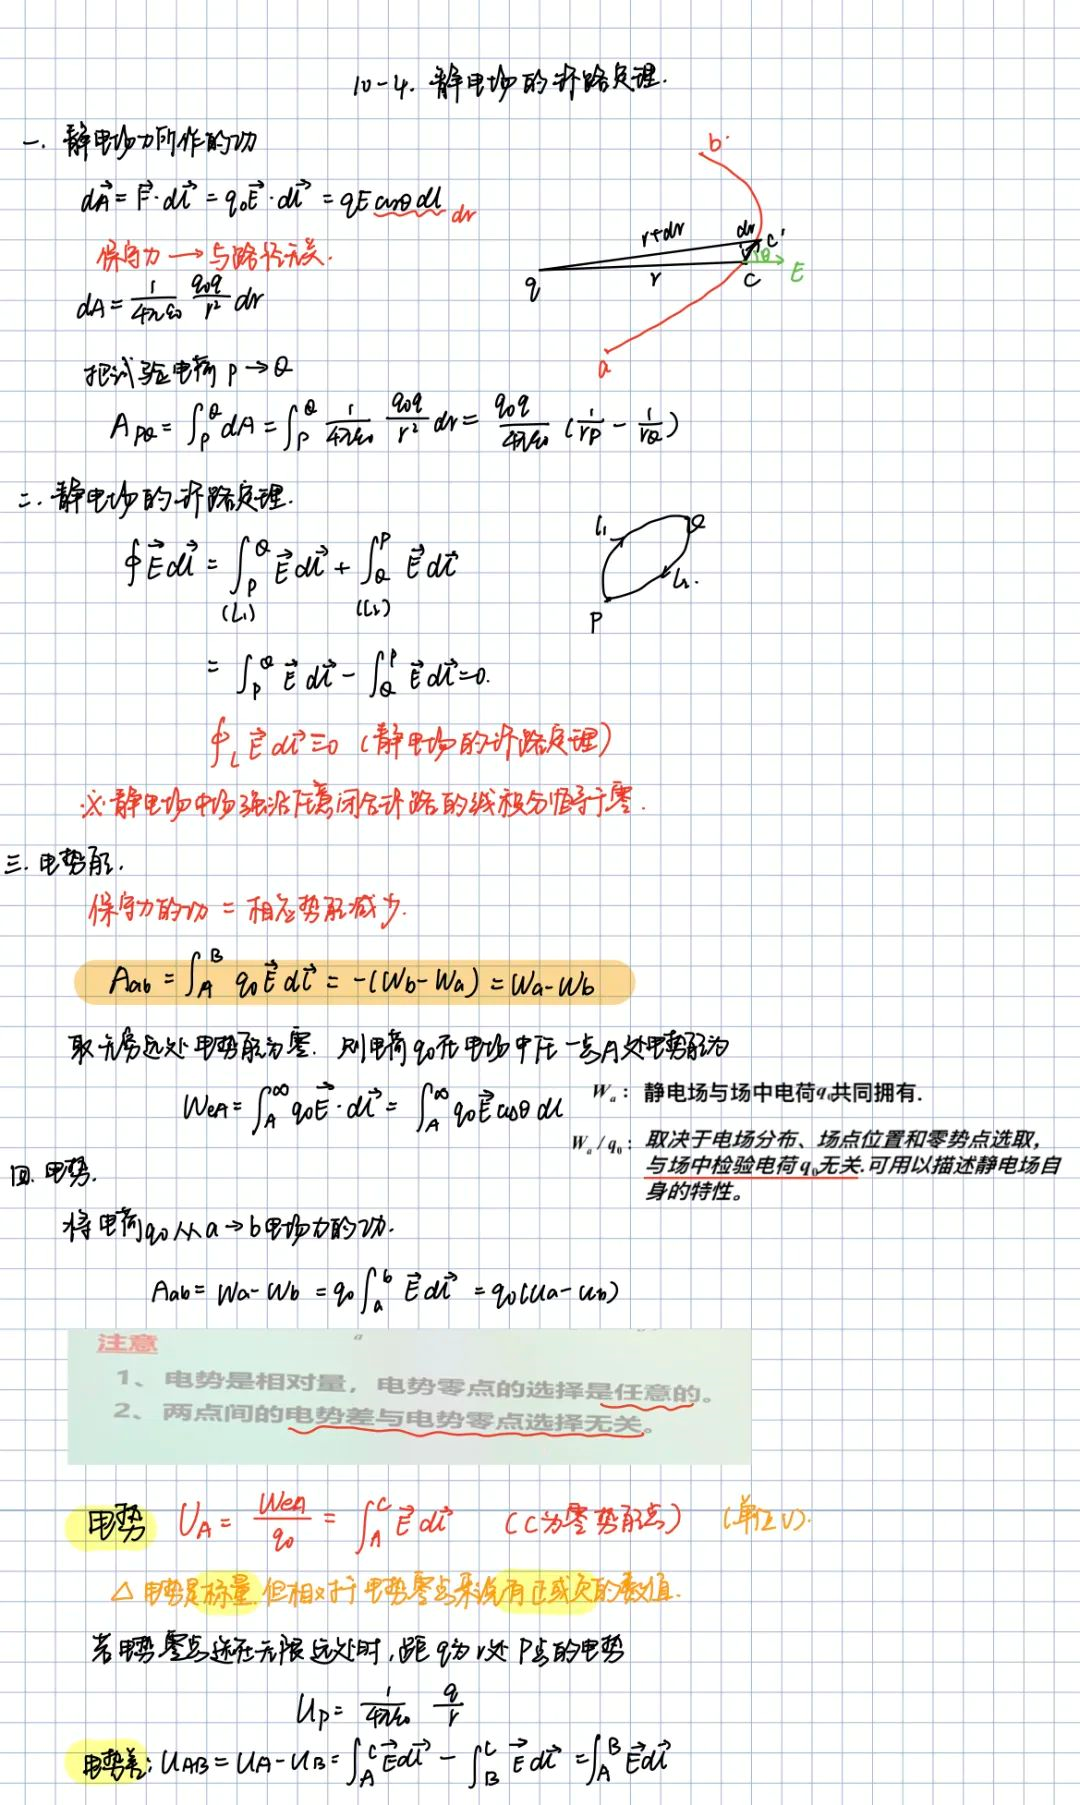 10-4. 静电场的环路定理.
一. 静电场力所作的功
dA⃗ = F⃗·dl⃗ = q₀E⃗·dl⃗ = qE cosθ dl dr
保守力 → 与路径无关.
dA = 1/4πε₀ q₀q/r² dr
b
r+dr dr c'
q r c θ E
a
把试验电荷 P → Q
A_PQ = ∫_P^Q dA = ∫_P^Q 1/4πε₀ q₀q/r² dr = q₀q/4πε₀ (1/r_P - 1/r_Q)
二. 静电场的环路定理.
∮E⃗dl⃗ = ∫_P^Q E⃗dl⃗ + ∫_Q^P E⃗dl⃗
(L₁) (L₂)
L₁ Q
L₂.
P
= ∫_P^Q E⃗dl⃗ - ∫_Q^P E⃗dl⃗ = 0.
∮_L E⃗dl⃗ ≡ 0 (静电场的环路定理)
※静电场中场强沿任意闭合环路的线积分恒等于零.
三. 电势能.
保守力的功 = 相应势能减少.
Aab = ∫_A^B q₀E⃗dl⃗ = -(Wb-Wa) = Wa-Wb
取无穷远处电势能为零. 则电荷q₀在电场中任一点A处电势能为
WeA = ∫_A^∞ q₀E⃗·dl⃗ = ∫_A^∞ q₀E⃗cosθ dl
Wₐ: 静电场与场中电荷q₀共同拥有.
Wₐ/q₀: 取决于电场分布、场点位置和零势点选取,
与场中检验电荷q₀无关.可用以描述静电场自
身的特性。
四. 电势.
将电荷q₀从a→b电场力的功.
Aab = Wa-Wb = q₀∫_a^b E⃗dl⃗ = q₀(Ua-Ub)
a
注意
1、电势是相对量，电势零点的选择是任意的。
2、两点间的电势差与电势零点选择无关。
电势 U_A = WeA/q₀ = ∫_A^C E⃗dl⃗ (C为零势能点) (单位V).
△ 电势是标量.但相对于电势零点来说有正或负的数值.
若电势零点选在无限远处时,距q为r处P点的电势
Up = 1/4πε₀ q/r
电势差: U_AB = U_A-U_B = ∫_A^C E⃗dl⃗ - ∫_B^C E⃗dl⃗ = ∫_A^B E⃗dl⃗